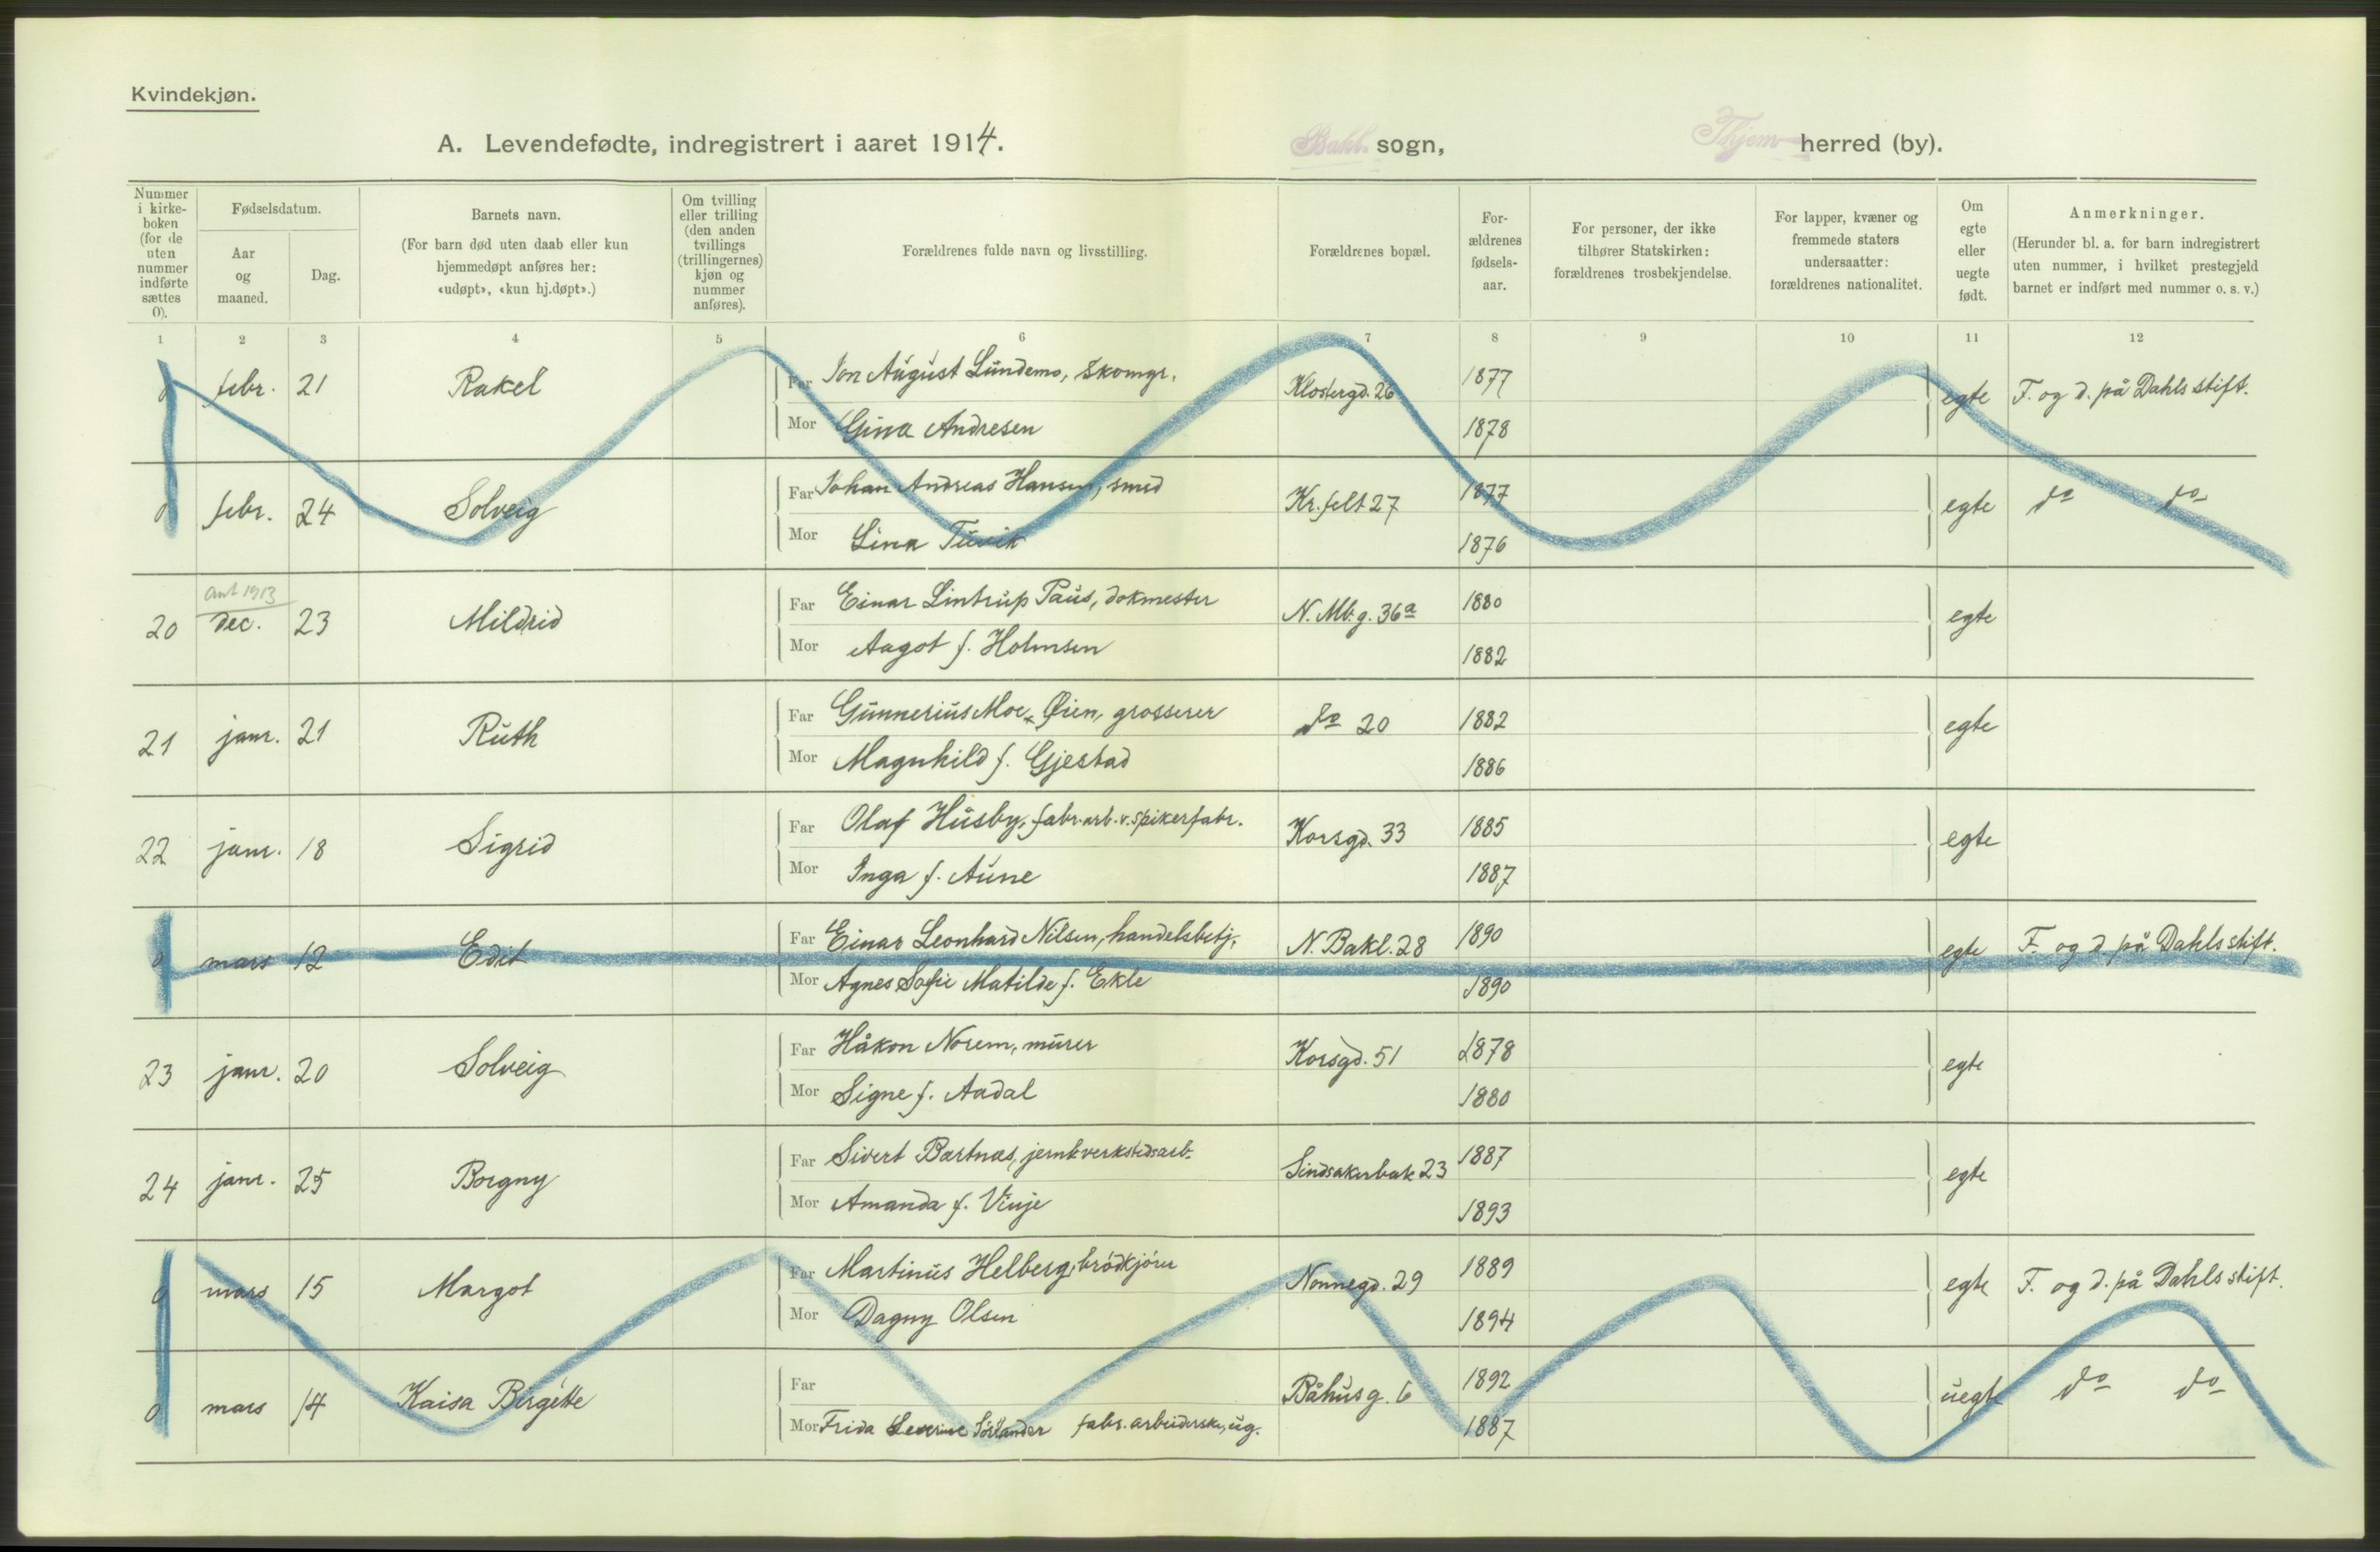 Kvindekjøn.
A. Levendefødte, indregistrert i aaret 1914.
Bakl. sogn,
Thjem herred (by).
Nummer i kirke-boken (for de uten nummer indførte sættes 0).
Fødselsdatum.
Aar og maaned.
Dag.
Barnets navn.
(For barn død uten daab eller kun hjemmedøpt anføres her: «udøpt», «kun hj.døpt».)
Om tvilling eller trilling (den anden tvillings (trillingernes) kjøn og nummer anføres).
Forældrenes fulde navn og livsstilling.
Forældrenes bopæl.
For-ældrenes fødsels-aar.
For personer, der ikke tilhører Statskirken: forældrenes trosbekjendelse.
For lapper, kvæner og fremmede staters undersaatter: forældrenes nationalitet.
Om egte eller uegte født.
Anmerkninger.
(Herunder bl. a. for barn indregistrert uten nummer, i hvilket prestegjeld barnet er indført med nummer o. s. v.)
1 2 3 4 5 6 7 8 9 10 11 12
0 febr. 21 Rakel Far Jon August Lundemo, skomgr. Klostergd. 26 1877 egte F. og d. på Dahls stift.
Mor Gina Andresen 1878
0 febr. 24 Solveig Far Johan Andreas Hansen, smed Kr. felt 27 1877 egte do do
Mor Lina Tuvik 1876
ant 1913
20 dec. 23 Mildrid Far Einar Lintrup Paus, dokmester N. Mb.g. 36a 1880 egte
Mor Aagot f. Holmsen 1882
21 janr. 21 Ruth Far Gunnerius Moe Øien, grosserer do 20 1882 egte
Mor Magnhild f. Gjestad 1886
22 janr. 18 Sigrid Far Olaf Husby, fabr.arb. v. spikerfabr. Korsgd. 33 1885 egte
Mor Inga f. Aune 1887
0 mars 12 Edit Far Einar Leonhard Nilsen, handelsbetj. N. Bakl. 28 1890 egte F. og d på Dahls stift.
Mor Agnes Sofie Matilde f. Ekle 1890
23 janr. 20 Solveig Far Håkon Norem, murer Korsgd. 51 1878 egte
Mor Signe f. Aadal 1880
24 janr. 25 Borgny Far Sivert Bartnæs, jernbverkstedsarb. Lindsakerbak 23 1887 egte
Mor Amanda f. Vinje 1893
0 mars 15 Margot Far Martinus Helberg, brödkjörer Nonnegd. 29 1889 egte F. og d. på Dahls stift.
Mor Dagny Olsen 1894
0 mars 14 Kaisa Bergette Far Båhusg. 6 1892 uegte do do
Mor Frida Severine fabr. arbeiderske, ug. 1887